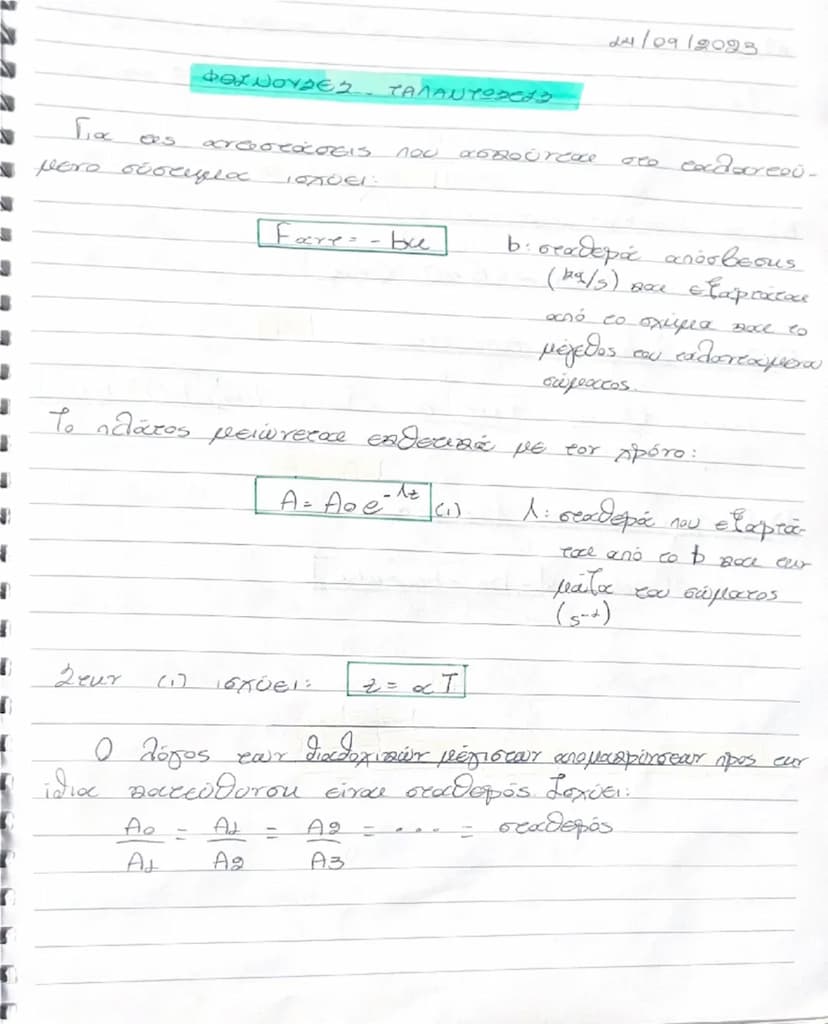 24/09/2023
ΦΘΙΝΟΥΣΕΣ ΤΑΛΑΝΤΩΣΕΙΣ
Για τις αντιστάσεις που ασκούνται στο ταλαντού-
μενο σύστημα ισχύει:
Fαντ = -bu b: σταθερά απόσβεσης
(kg/s) και εξαρτάται
από το σχήμα και το
μέγεθος του ταλαντούμενου
σώματος.
Το πλάτος μειώνεται εκθετικά με τον χρόνο:
A = A0 e^-Λt (1) Λ: σταθερά που εξαρτά-
ται από το b και την
μάζα του σώματος
(s^-1)
Στην (1) ισχύει: t = αT
Ο λόγος των διαδοχικών μέγιστων απομακρύνσεων προς την
ίδια κατεύθυνση είναι σταθερός. Ισχύει:
A0/A1 = A1/A2 = A2/A3 = ... = σταθερός